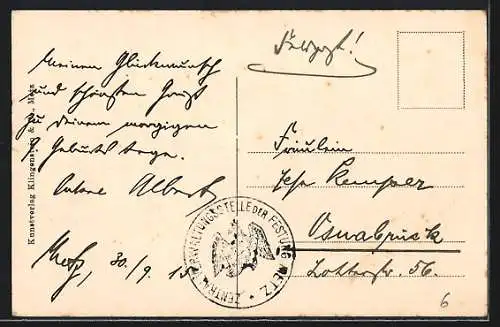 Feldpost!
Meinen Glückwunsch
und schönsten Gruß
zu Deinem morgigen
Geburtstage.
Albert
Metz, 30/9. 15
Fräulein
Kemper
Osnabrück
Lotterstr. 56.
ZENTRAL-VERWALTUNGSSTELLE DER FESTUNG METZ
Kunstverlag Klingenstein & Metz
6